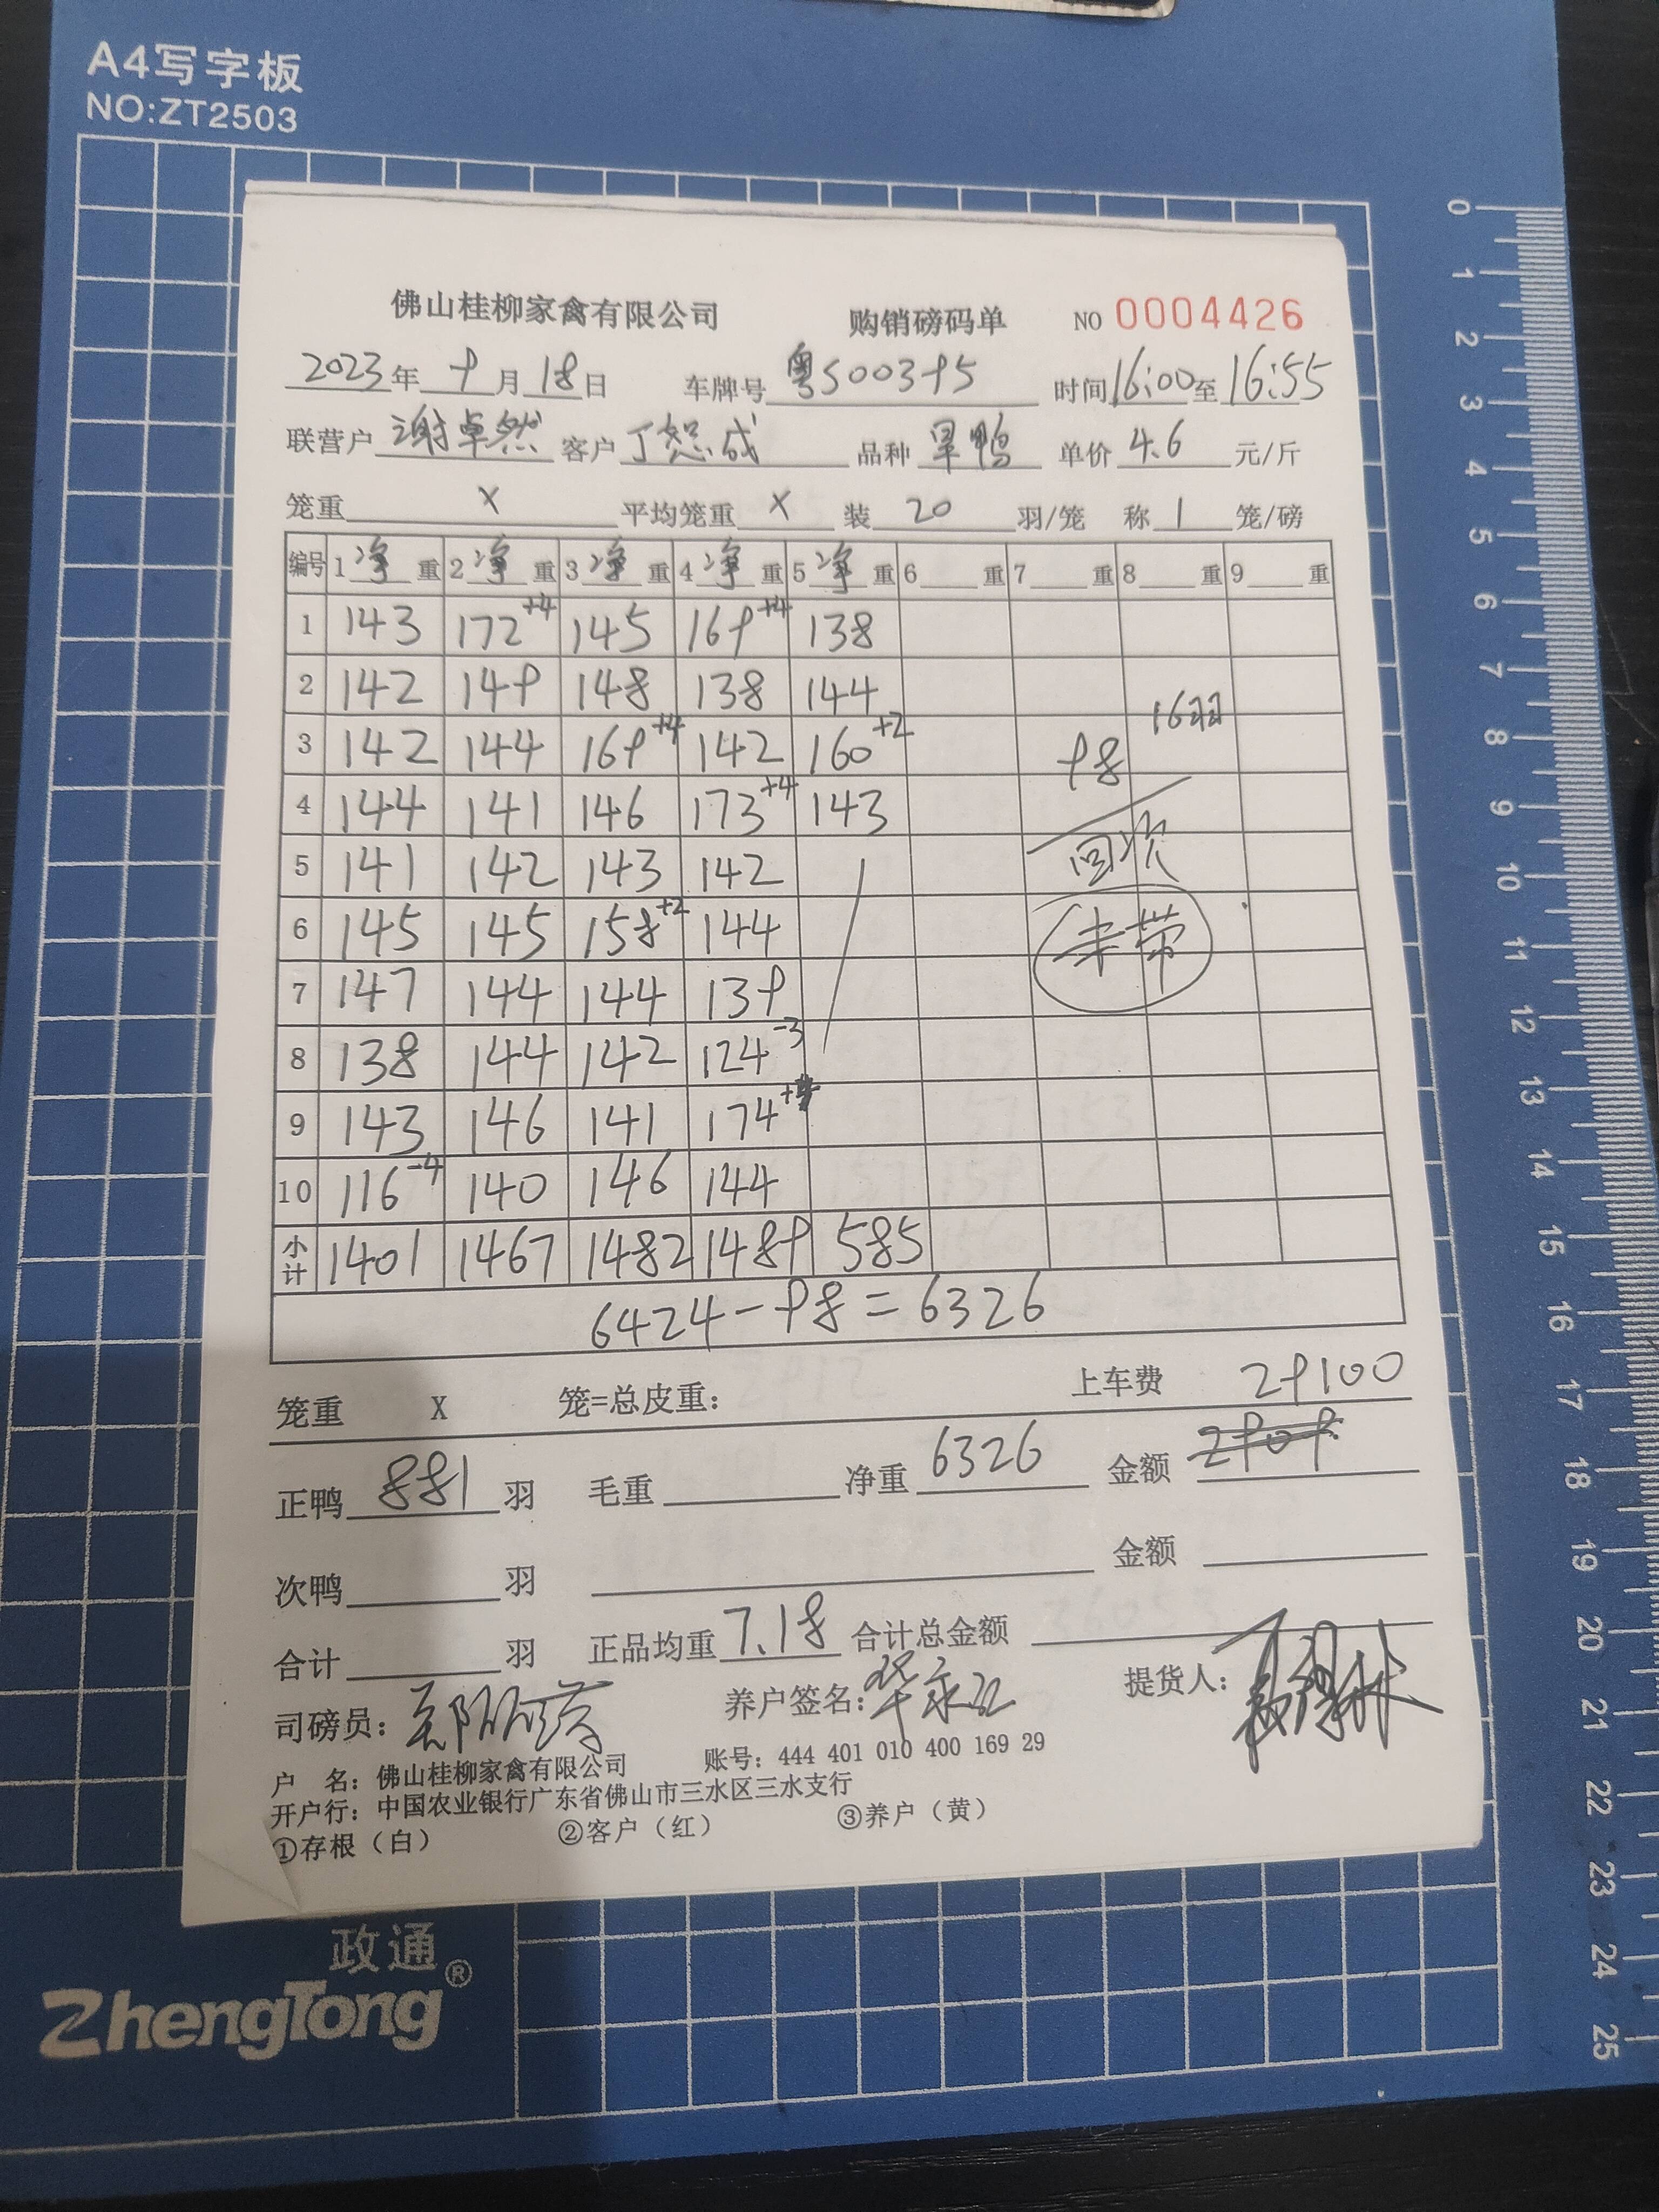 A4写字板
NO:ZT2503
佛山桂柳家禽有限公司 购销磅码单 NO 0004426
2023年 9月18日 车牌号 粤S00395 时间16:00至16:55
联营户 谢卓然 客户 丁恕成 品种 旱鸭 单价 4.6 元/斤
笼重 X 平均笼重 X 装 20 羽/笼 称 1 笼/磅
编号 1净重 2净重 3净重 4净重 5净重 6重 7重 8重 9重
1 143 172+4 145 169+4 138
2 142 149 148 138 144 16羽
3 142 144 169+4 142 160+2 98
4 144 141 146 173+4 143
5 141 142 143 142 回次
6 145 145 158+2 144 未带
7 147 144 144 139
8 138 144 142 124-3
9 143 146 141 174
10 116-4 140 146 144
小计 1401 1467 1482 1489 585
6424-98=6326
笼重 X 笼=总皮重: 上车费 29100
正鸭 881 羽 毛重 净重 6326 金额
次鸭 羽 金额
合计 羽 正品均重 7.18 合计总金额
司磅员: 养户签名: 提货人:
户 名: 佛山桂柳家禽有限公司 账号: 444 401 010 400 169 29
开户行: 中国农业银行广东省佛山市三水区三水支行
①存根（白） ②客户（红） ③养户（黄）
政通®
ZhengTong
0
1
2
3
4
5
6
7
8
9
10
11
12
13
14
15
16
17
18
19
20
21
22
23
24
25